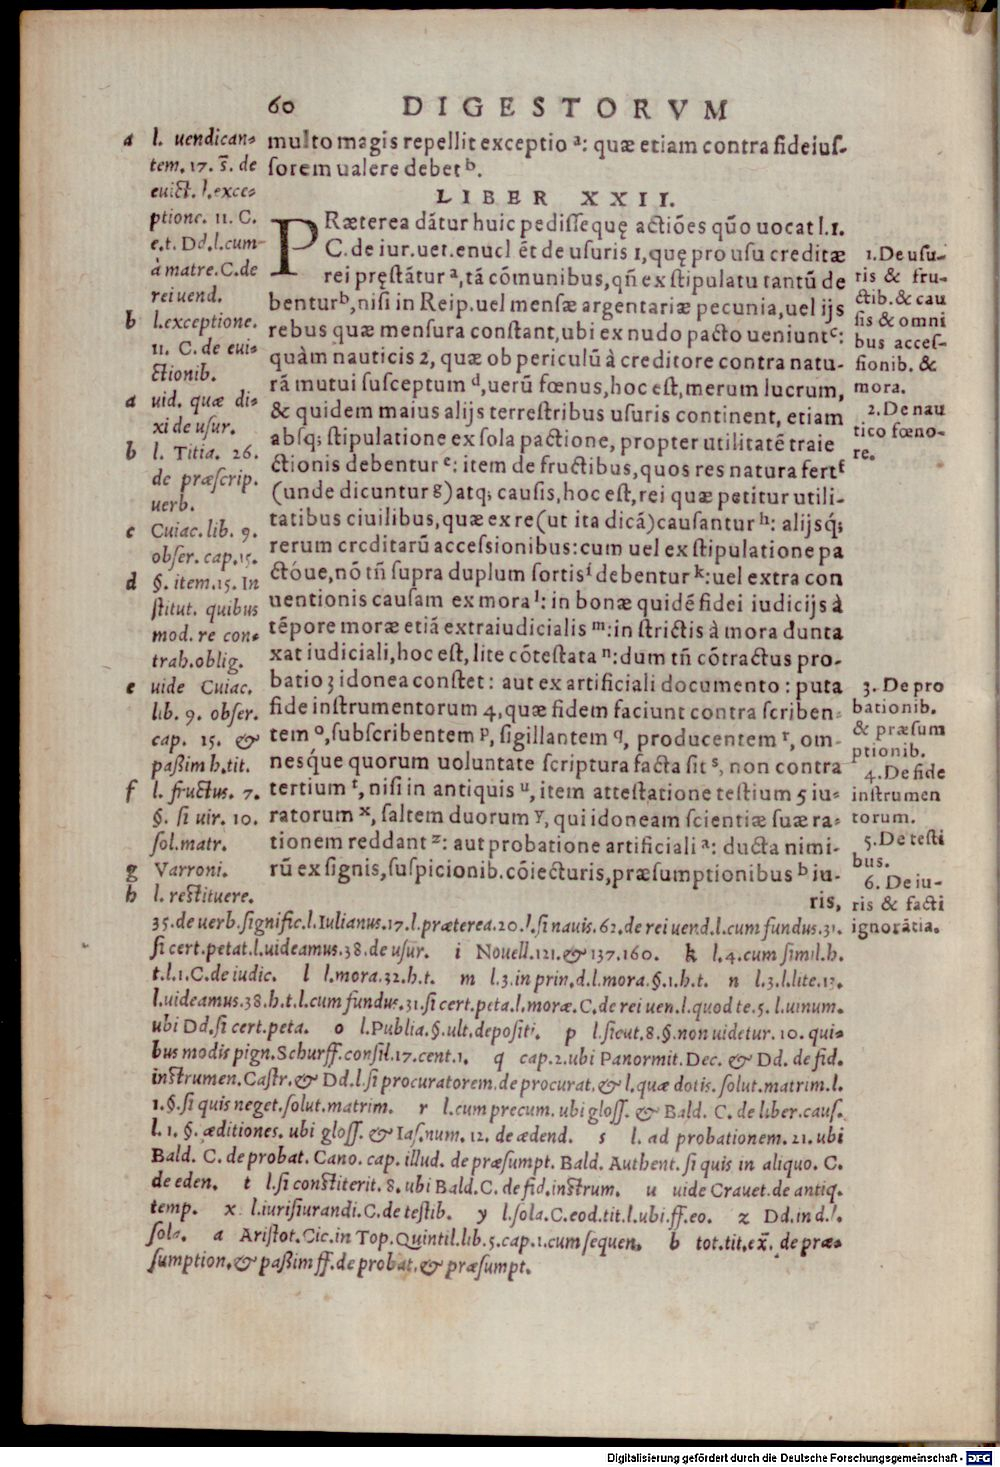 60 DIGESTORVM
multo magis repellit exceptio ᵃ: quæ etiam contra fideiuſ-
ſorem ualere debet ᵇ.
LIBER XXII.
PRæterea dātur huic pediſſequę actiōes qūo uocat l.1.
C. de iur. uet. enucl ēt de uſuris 1, quę pro uſu creditæ
rei pręſtātur ᵃ, tā cōmunibus, qñ ex ſtipulatu tantū de
benturᵇ, niſi in Reip. uel menſæ argentariæ pecunia, uel ijs
rebus quæ menſura conſtant, ubi ex nudo pacto ueniuntᶜ:
quàm nauticis 2, quæ ob periculū à creditore contra natu-
rā mutui ſuſceptum ᵈ, uerū fœnus, hoc eſt, merum lucrum,
& quidem maius alijs terreſtribus uſuris continent, etiam
abſq; ſtipulatione ex ſola pactione, propter utilitatē traie
ctionis debentur ᵉ: item de fructibus, quos res natura fertᶠ
(unde dicuntur g) atq; cauſis, hoc eſt, rei quæ petitur utili-
tatibus ciuilibus, quæ ex re (ut ita dicā) cauſantur ʰ: alijsq́;
rerum creditarū acceſsionibus: cum uel ex ſtipulatione pa
ctóue, nō tñ ſupra duplum ſortisⁱ debentur ᵏ: uel extra con
uentionis cauſam ex mora ˡ: in bonæ quidē fidei iudicijs à
tēpore moræ etiā extraiudicialis ᵐ: in ſtrictis à mora dunta
xat iudiciali, hoc eſt, lite cōteſtata ⁿ: dum tñ cōtractus pro-
batio 3 idonea conſtet: aut ex artificiali documento: puta
fide inſtrumentorum 4, quæ fidem faciunt contra ſcriben-
tem ᵒ, ſubſcribentem ᵖ, ſigillantem q, producentem ʳ, om-
nesq́ue quorum uoluntate ſcriptura facta ſit ˢ, non contra
tertium ᵗ, niſi in antiquis ᵘ, item atteſtatione teſtium 5 iu-
ratorum ˣ, ſaltem duorum ʸ, qui idoneam ſcientiæ ſuæ ra-
tionem reddant ᶻ: aut probatione artificiali ᵃ: ducta nimi-
rū ex ſignis, ſuſpicionib. cōiecturis, præſumptionibus ᵇ iu-
ris,
a l. uendican-
tem. 17. s̄. de
euict. l. exce-
ptione. 11. C.
e.t. Dd. l. cum
à matre. C. de
rei uend.
b l. exceptione.
11. C. de eui-
ctionib.
a uid. quæ di-
xi de uſur.
b l. Titia. 26.
de præſcrip.
uerb.
c Cuiac. lib. 9.
obſer. cap. 15.
d §. item. 15. In
ſtitut. quibus
mod. re con-
trah. oblig.
e uide Cuiac.
lib. 9. obſer.
cap. 15. &
paßim h. tit.
f l. fructus. 7.
§. ſi uir. 10.
ſol. matr.
g Varroni.
h l. reſtituere.
1. De uſu-
ris & fru-
ctib. & cau
ſis & omni
bus acceſ-
ſionib. &
mora.
2. De nau
tico fœno-
re.
3. De pro
bationib.
& præſum
ptionib.
4. De fide
inſtrumen
torum.
5. De teſti
bus.
6. De iu-
ris & facti
ignorātia.
35. de uerb. ſignific. l. Iulianus. 17. l. præterea. 20. l. ſi nauis. 62. de rei uend. l. cum fundus. 31.
ſi cert. petat. l. uideamus. 38. de uſur. i Nouell. 121. & 137. 160. k l. 4. cum ſimil. h.
t. l. 1. C. de iudic. l l. mora. 32. h. t. m l. 3. in prin. d. l. mora. §. 1. h. t. n l. 3. l. lite. 13.
l. uideamus. 38. h. t. l. cum fundus. 31. ſi cert. peta. l. moræ. C. de rei uen. l. quod te. 5. l. uinum.
ubi Dd. ſi cert. peta. o l. Publia. §. ult. depoſiti. p l. ſicut. 8. §. non uidetur. 10. qui-
bus modis pign. Schurff. conſil. 17. cent. 1. q cap. 2. ubi Panormit. Dec. & Dd. de fid.
inſtrumen. Caſtr. & Dd. l. ſi procuratorem. de procurat. & l. quæ dotis. ſolut. matrim. l.
1. §. ſi quis neget. ſolut. matrim. r l. cum precum. ubi gloſſ. & Bald. C. de liber. cauſ.
l. 1. §. æditiones. ubi gloſſ. & Iaſ. num. 12. de ædend. s l. ad probationem. 21. ubi
Bald. C. de probat. Cano. cap. illud. de præſumpt. Bald. Authent. ſi quis in aliquo. C.
de eden. t l. ſi conſtiterit. 8. ubi Bald. C. de fid. inſtrum. u uide Crauet. de antiq.
temp. x l. iuriſiurandi. C. de teſtib. y l. ſola. C. eod. tit. l. ubi. ff. eo. z Dd. in d. l.
ſola. a Ariſtot. Cic. in Top. Quintil. lib. 5. cap. 1. cum ſequen. b tot. tit. ex̄. de præ-
ſumption. & paßim ff. de probat. & præſumpt.
Digitalisierung gefördert durch die Deutsche Forschungsgemeinschaft - DFG